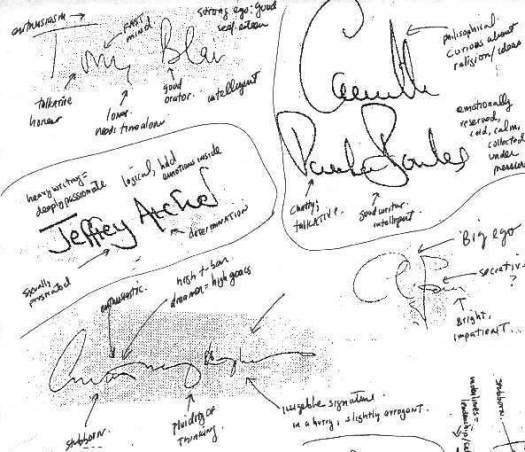 enthusiasm
FAST
mind
strong ego: good
self esteem
Tony Blair
talkative
honest
loner
needs time alone
good
orator.
intelligent
philosophical.
curious about
religion/ideas
Camilla
Parker Bowles
emotionally
reserved,
cold, calm,
collected
under
pressure
chatty,
TALKATIVE.
good writer.
intelligent
heavy writing =
deeply passionate
logical, hold
emotions inside
Jeffrey Archer
DETERMINATION
Big ego
secretive
?
Bright,
impatient.
enthusiastic.
high t-bar
dreamer = high goals
stubborn.
fluidity of
thinking.
illegible signature
in a hurry, slightly arrogant.
stubborn.